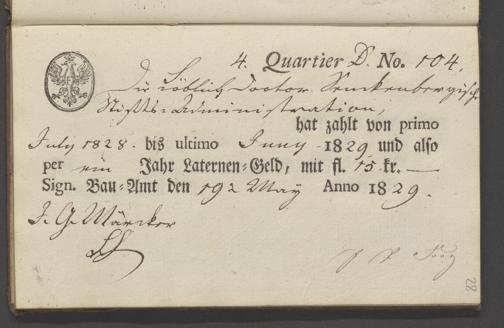 4. Quartier D. No. 104.
Die Löblich Doctor Senckenbergische
Stiffts-Administration,
hat zahlt von primo
July 1828. bis ultimo Juny 1829 und also
per ein Jahr Laternen-Geld, mit fl. 15 kr. —
Sign. Bau-Amt den 19ᵗ May Anno 1829.
J. G. Märcker
28